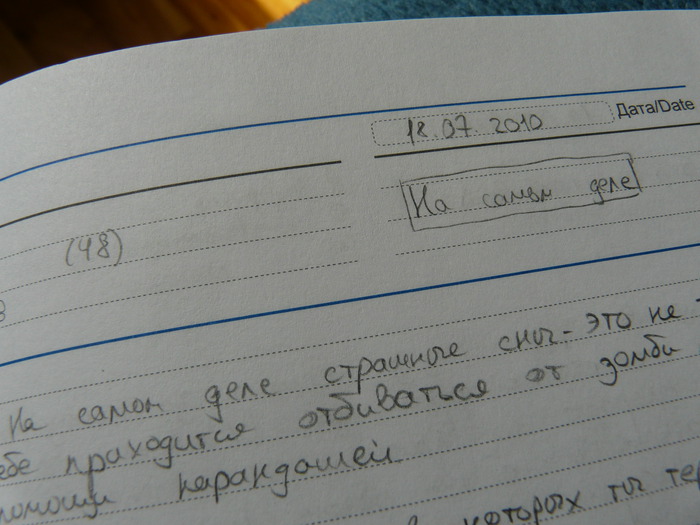 18.07.2010 Дата/Date
На самом деле
(48)
в
На самом деле страшные сны - это не
ебе приходится отбиваться от зомби
помощи карандашей
в которых ты тер